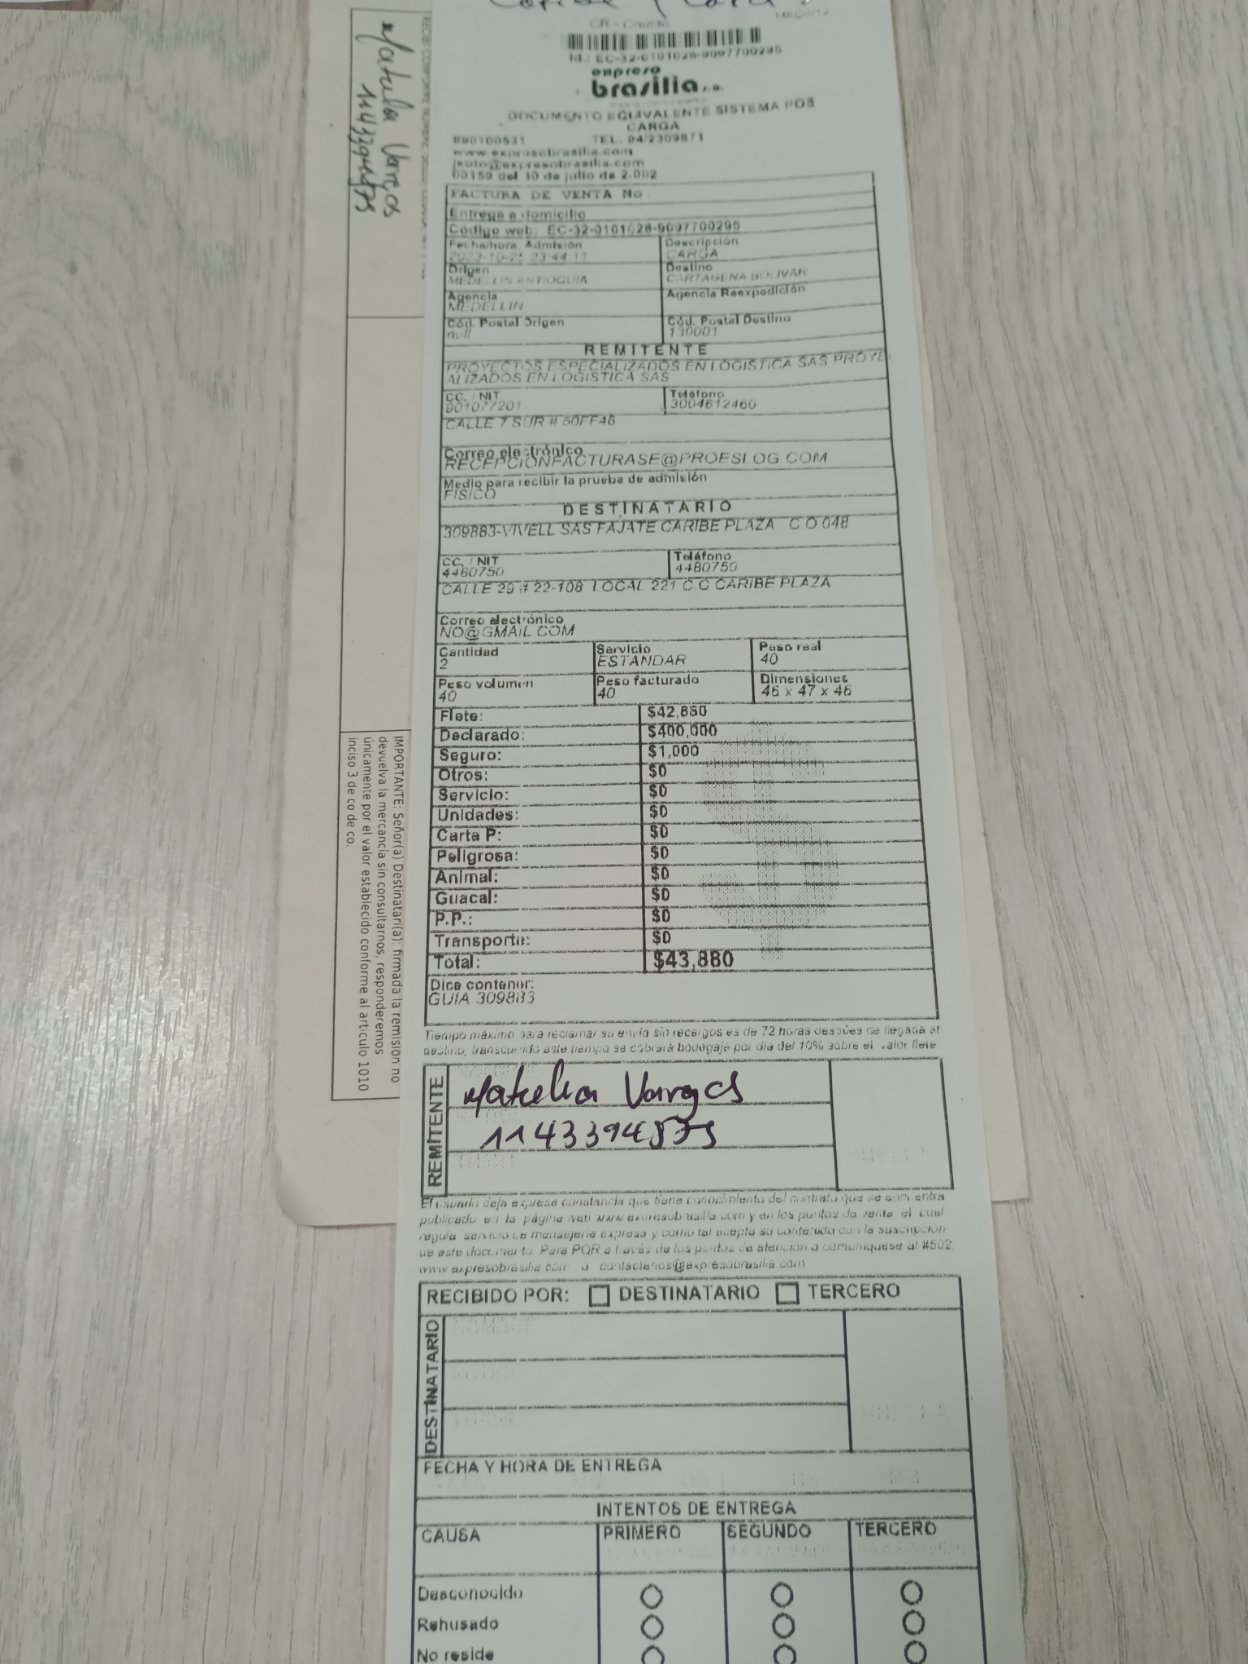 CR - Crédito
Id.: EC-32-0101028-9097700295
expreso
brasilia s.a.
DOCUMENTO EQUIVALENTE SISTEMA POS
CARGA
890100531 TEL. 04/2309871
www.expresobrasilia.com
jsoto@expresobrasilia.com
00159 del 10 de julio de 2.002
FACTURA DE VENTA No.
Entrega a domicilio
Código web: EC-32-0101028-9097700295
Fecha/hora Admisión Descripción
23:44:11 CARGA
Origen Destino
MEDELLIN ANTIOQUIA CARTAGENA BOLIVAR
Agencia Agencia Reexpedición
MEDELLIN
Cód. Postal Origen Cód. Postal Destino
null 130001
REMITENTE
PROYECTOS ESPECIALIZADOS EN LOGISTICA SAS PROYE
ALIZADOS EN LOGISTICA SAS
CC. / NIT Teléfono
901077201 3004612460
CALLE 7 SUR # 50FF46
Correo electrónico
RECEPCIONFACTURASE@PROESLOG.COM
Medio para recibir la prueba de admisión
FISICO
DESTINATARIO
309883-VIVELL SAS FAJATE CARIBE PLAZA C O 048
CC. / NIT Teléfono
4480750 4480750
CALLE 29 # 22-108 LOCAL 221 C.C CARIBE PLAZA
Correo electrónico
NO@GMAIL.COM
Cantidad Servicio Peso real
2 ESTANDAR 40
Peso volumen Peso facturado Dimensiones
40 40 46 x 47 x 46
Flete: $42,880
Declarado: $400,000
Seguro: $1,000
Otros: $0
Servicio: $0
Unidades: $0
Carta P: $0
Peligrosa: $0
Animal: $0
Guacal: $0
P.P.: $0
Transporte: $0
Total: $43,880
Dice contener:
GUIA 309883
Tiempo máximo para reclamar su envío sin recargos es de 72 horas después de llegada al
destino, transcurrido este tiempo se cobrará bodegaje por día del 10% sobre el valor flete
REMITENTE
Vargas
El usuario deja expresa constancia que tiene conocimiento del contrato que se encuentra
publicado en la página web www.expresobrasilia.com y en los puntos de venta, el cual
regula servicio de mensajería expresa y como tal acepta su contenido con la suscripción
de este documento. Para PQR a través de los puntos de atención o comuníquese al #502,
www.expresobrasilia.com o contactenos@expresobrasilia.com
RECIBIDO POR: DESTINATARIO TERCERO
DESTINATARIO
FECHA Y HORA DE ENTREGA
INTENTOS DE ENTREGA
CAUSA PRIMERO SEGUNDO TERCERO
Desconocido
Rehusado
No reside
Vargas
IMPORTANTE: Señor(a) Destinatari(a): firmada la remisión no
devuelva la mercancía sin consultarnos, responderemos
únicamente por el valor establecido conforme al artículo 1010
inciso 3 de co de co.